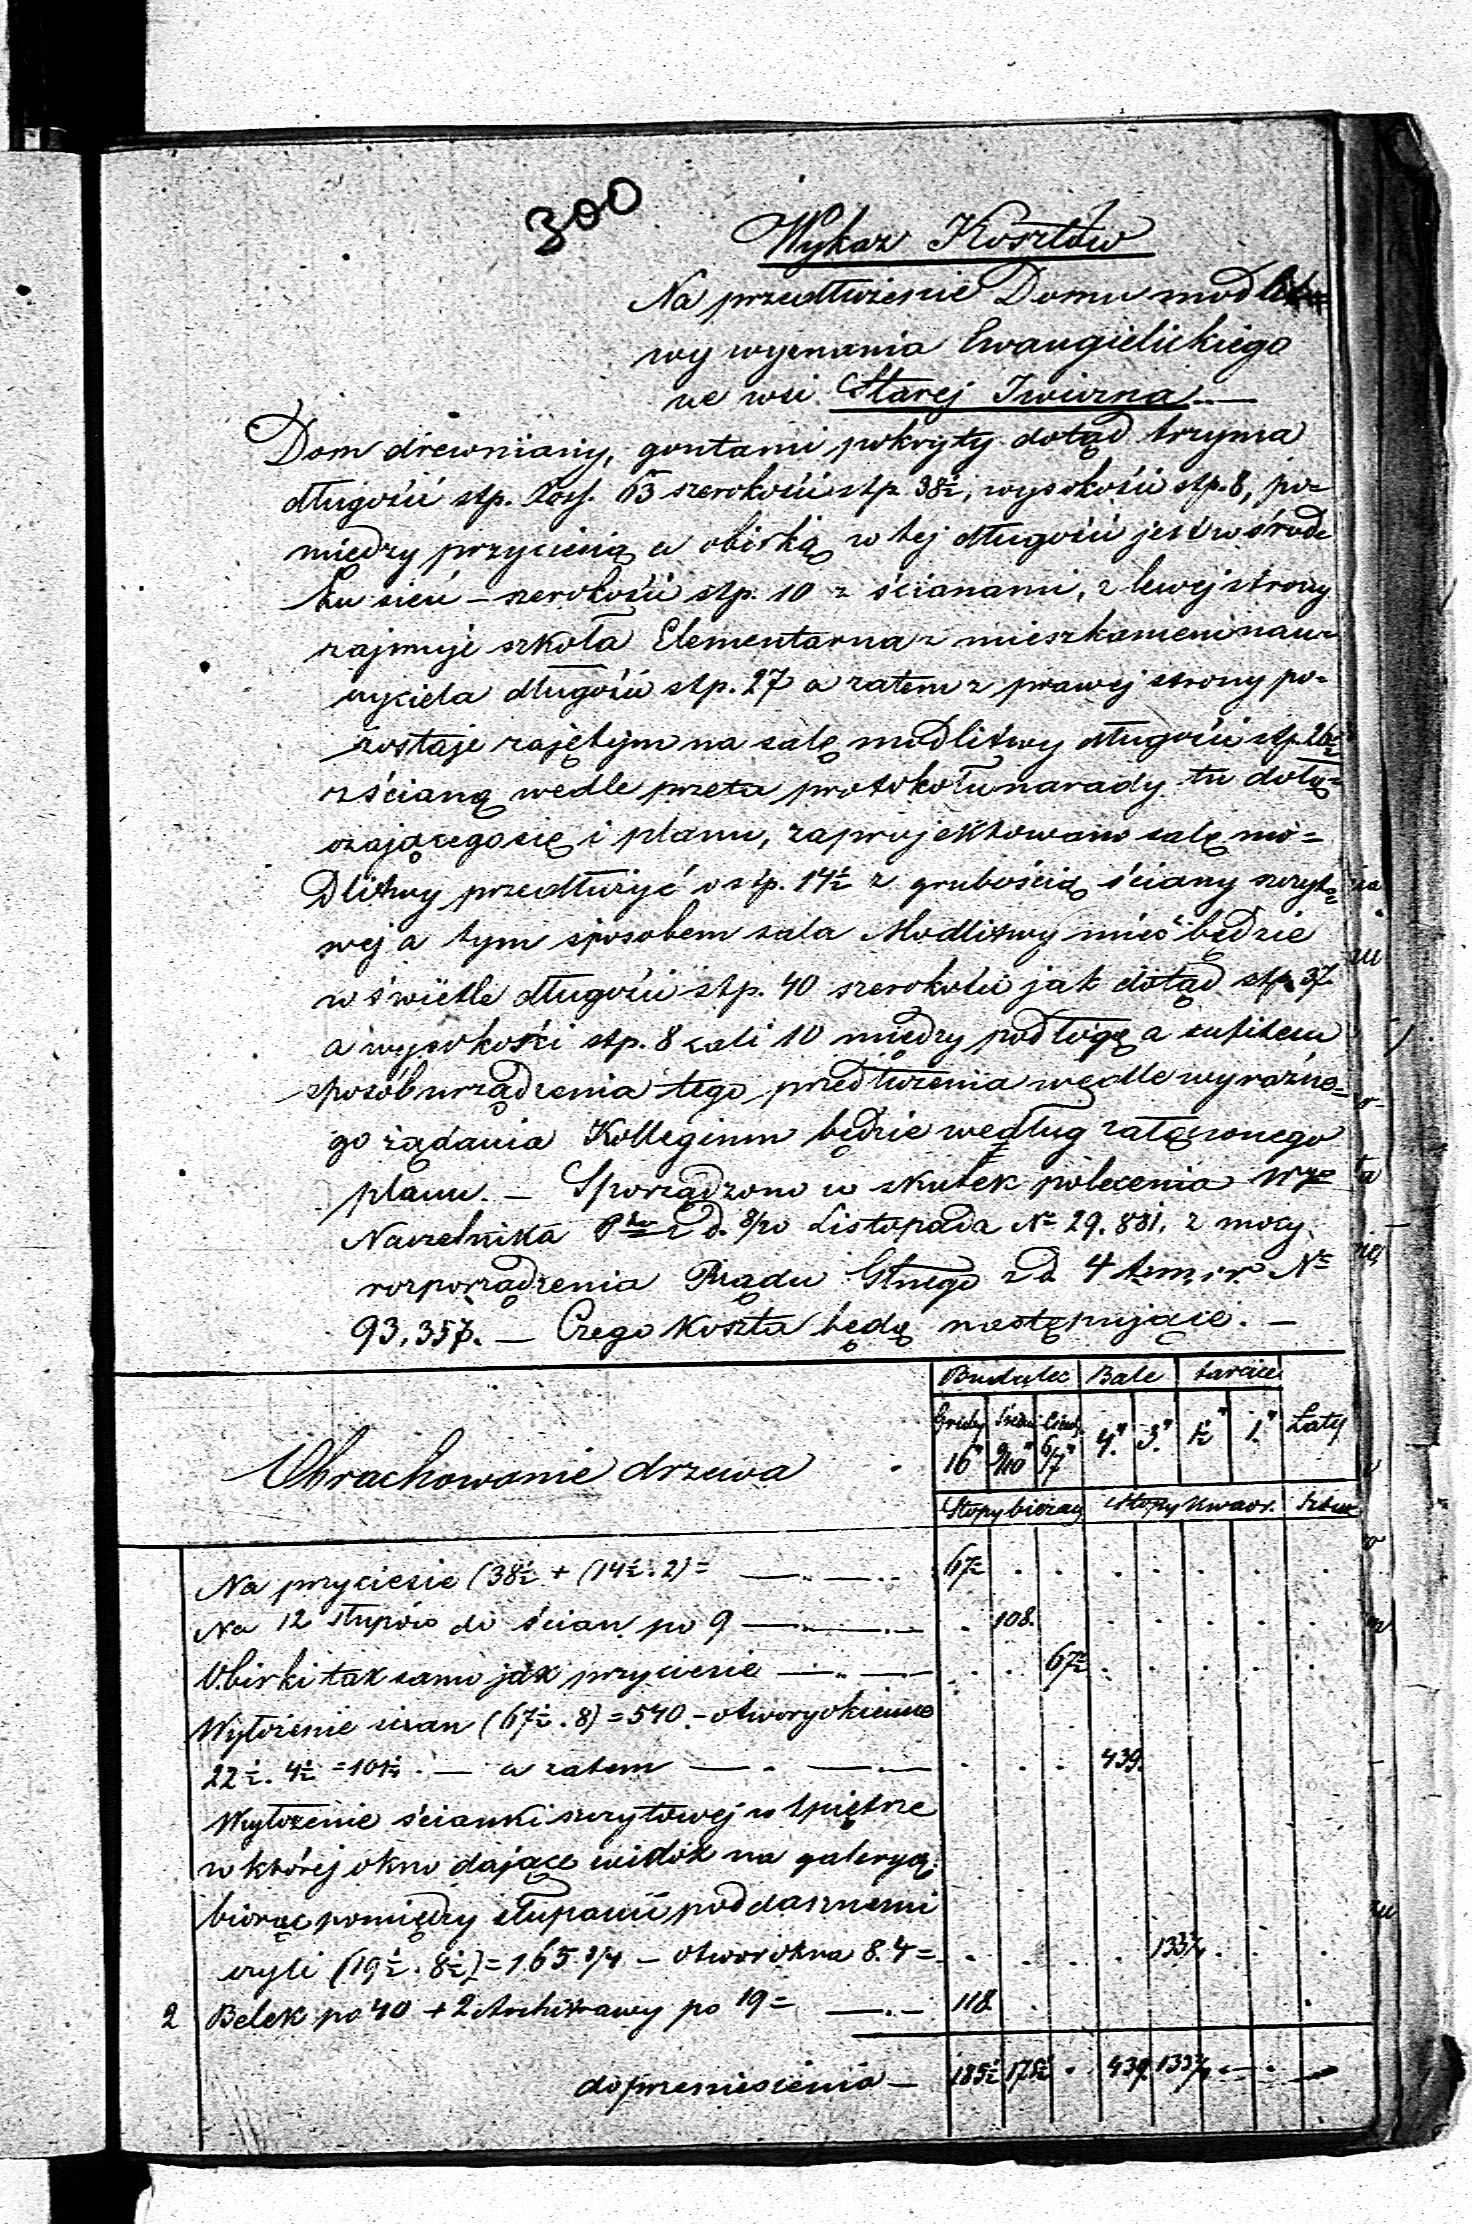 300
Wykaz Kosztów
Na przedłużenie Domu modlit=
wy wyznania Ewangielickiego
we wsi Starej Iwiczna.—
Dom drewniany, gontami pokryty dotąd trzyma
długości stp. 63 szerokości stp 38½, wysokości stp. 8, po=
między przyciesią a obirką w tej długości jest w środ
ku sień – szerokości stp. 10 z ścianami, z lewej strony
zajmuje szkoła Elementarna z mieszkaniem nau=
czyciela długości stp. 27 a zatem z prawej strony po=
zostaje zajętym na salę modlitwy długości stp 26½
z ścianą wedle protokołu narady tu dołą=
czającego się i planu, zaprojektowano salę mo=
dlitwy przedłużyć o stp. 14½ z grubością ściany szczyto=
wej a tym sposobem sala Modlitwy mieć będzie
w świetle długości stp. 40 szerokości jak dotąd stp. 37
a wysokości stp. 8 cali 10 między podłogą a sufitem
sposób urządzenia tego przedłużenia wedle wyraźne=
go żądania Kollegium będzie według załączonego
planu. — Sporządzono w skutek polecenia
Naczelnika Ptu z d. 8/20 Listopada № 29.881. z mocy
rozporządzenia Rządu Głnego z d 4 t.m.i.r. №
93,357. — Czego koszta będą następujące. —
Budulec Bale tarcice
Gruby Średni Cienk. 4" 3" 1½" 1" Łaty
16" 9/10" 6/7"
Obrachowanie drzewa
Stopy bieżącej Stopy kwadr. Sztuk
Na przyciesie (38½ + (14½.2) = 67½
Na 12 słupów do ścian po 9 108.
Obirki tak samo jak przyciesie 67½
Wyłożenie ścian (67½.8) = 540. – otwory okienne
22½. 4½ = 101¼. — a zatem 439.
Wyłożenie ścianki szczytowej w 1 piętrze
w której okno dające widok na galeryą
biorąc pomiędzy słupami poddasznemi
czyli (19½. 8½) = 165.¾ – otwór okna 8.4 = 133¾
2 Belek po 40 + 2 Architrawy po 19 = 118.
do przeniesienia — 185½ 175½ 439. 133¾